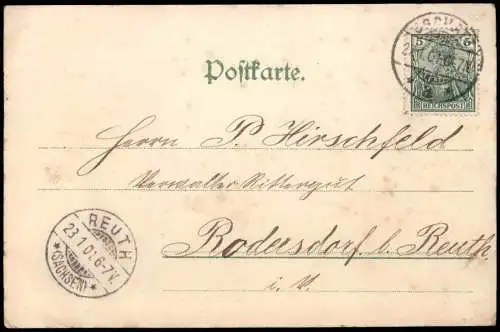 5 5
REICHSPOST
Postkarte.
Herrn P. Hirschfeld
Verwalter Rittergut
Rodersdorf b. Reuth
i. V.
REUTH
23.1.01.6-7N.
*(SACHSEN)*